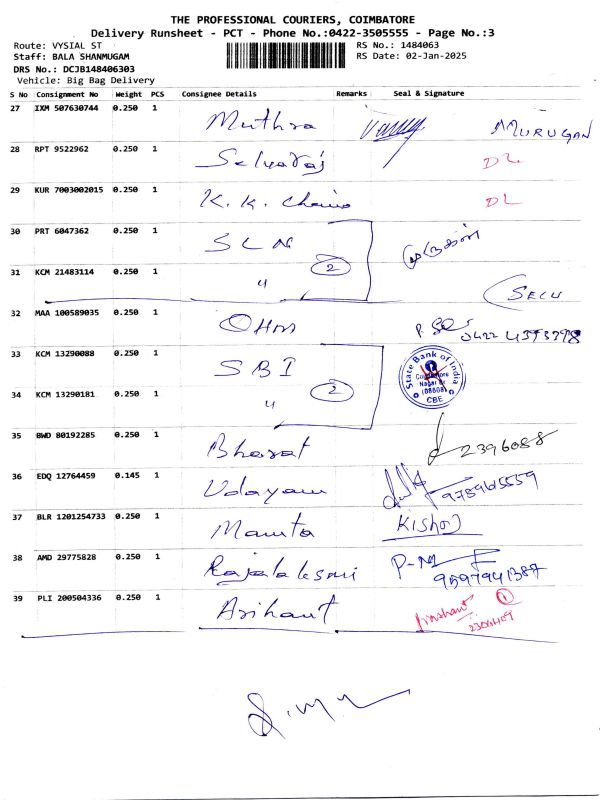 THE PROFESSIONAL COURIERS, COIMBATORE
Delivery Runsheet - PCT - Phone No.:0422-3505555 - Page No.:3
Route: VYSIAL ST RS No.: 1484063
Staff: BALA SHANMUGAM RS Date: 02-Jan-2025
DRS No.: DCJB148406303
Vehicle: Big Bag Delivery
S No Consignment No Weight PCS Consignee Details Remarks Seal & Signature
27 IXM 507630744 0.250 1 Muthra MURUGAN
28 RPT 9522962 0.250 1 Selvaraj DL
29 KUR 7003002015 0.250 1 K.K. Chains DL
30 PRT 6047362 0.250 1 SLN முருகன்
31 KCM 21483114 0.250 1 " 2 SELU
32 MAA 100589035 0.250 1 Ohm
33 KCM 13290088 0.250 1 SBI State Bank of India
34 KCM 13290181 0.250 1 " 2 Nagar Br CBE
35 BWD 80192285 0.250 1 Bharat 2396088
36 EDQ 12764459 0.145 1 Udayam
37 BLR 1201254733 0.250 1 Mamta Kishor
38 AMD 29775828 0.250 1 Rajalaksmi P-M 9597941387
39 PLI 200504336 0.250 1 Arihant Prashant 1